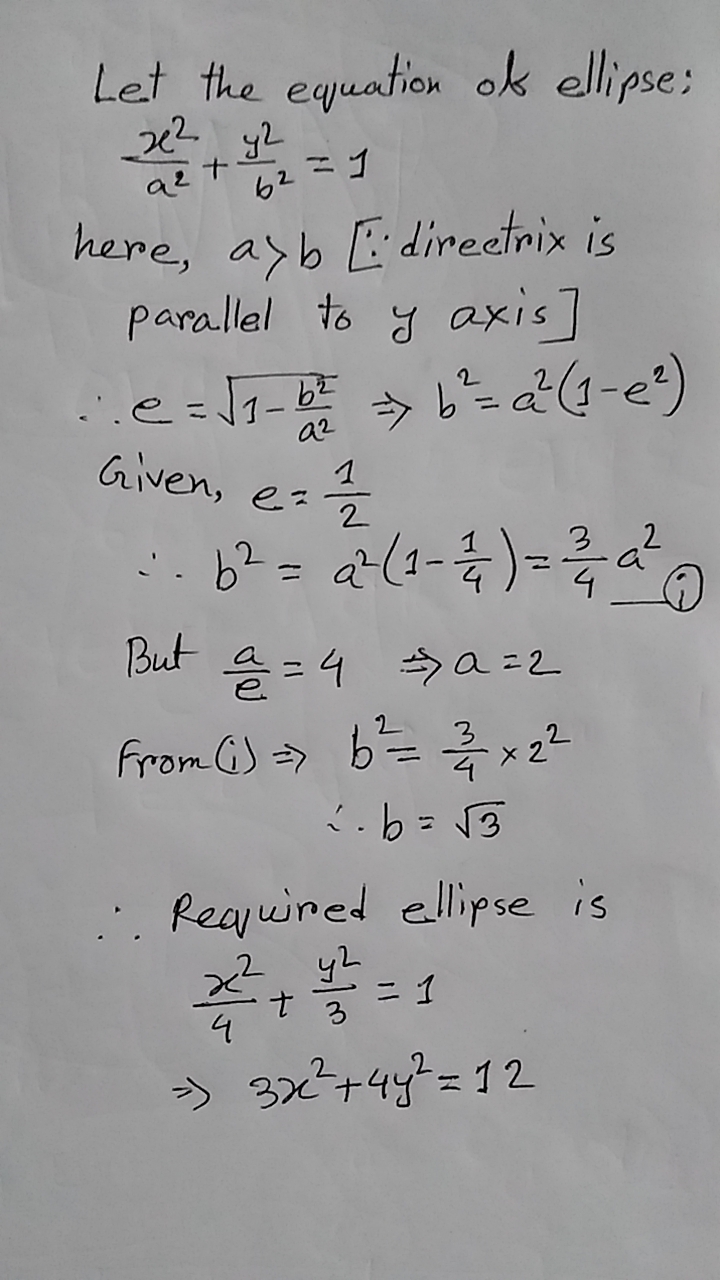 Let the equation of ellipse:
x²/a² + y²/b² = 1
here, a>b [∵ directrix is
parallel to y axis]
∴ e = √(1 - b²/a²) ⇒ b² = a²(1-e²)
Given, e = 1/2
∴ b² = a²(1 - 1/4) = 3/4 a² __ⓘ
But a/e = 4 ⇒ a = 2
From (i) ⇒ b² = 3/4 × 2²
∴ b = √3
∴ Required ellipse is
x²/4 + y²/3 = 1
⇒ 3x²+4y² = 12